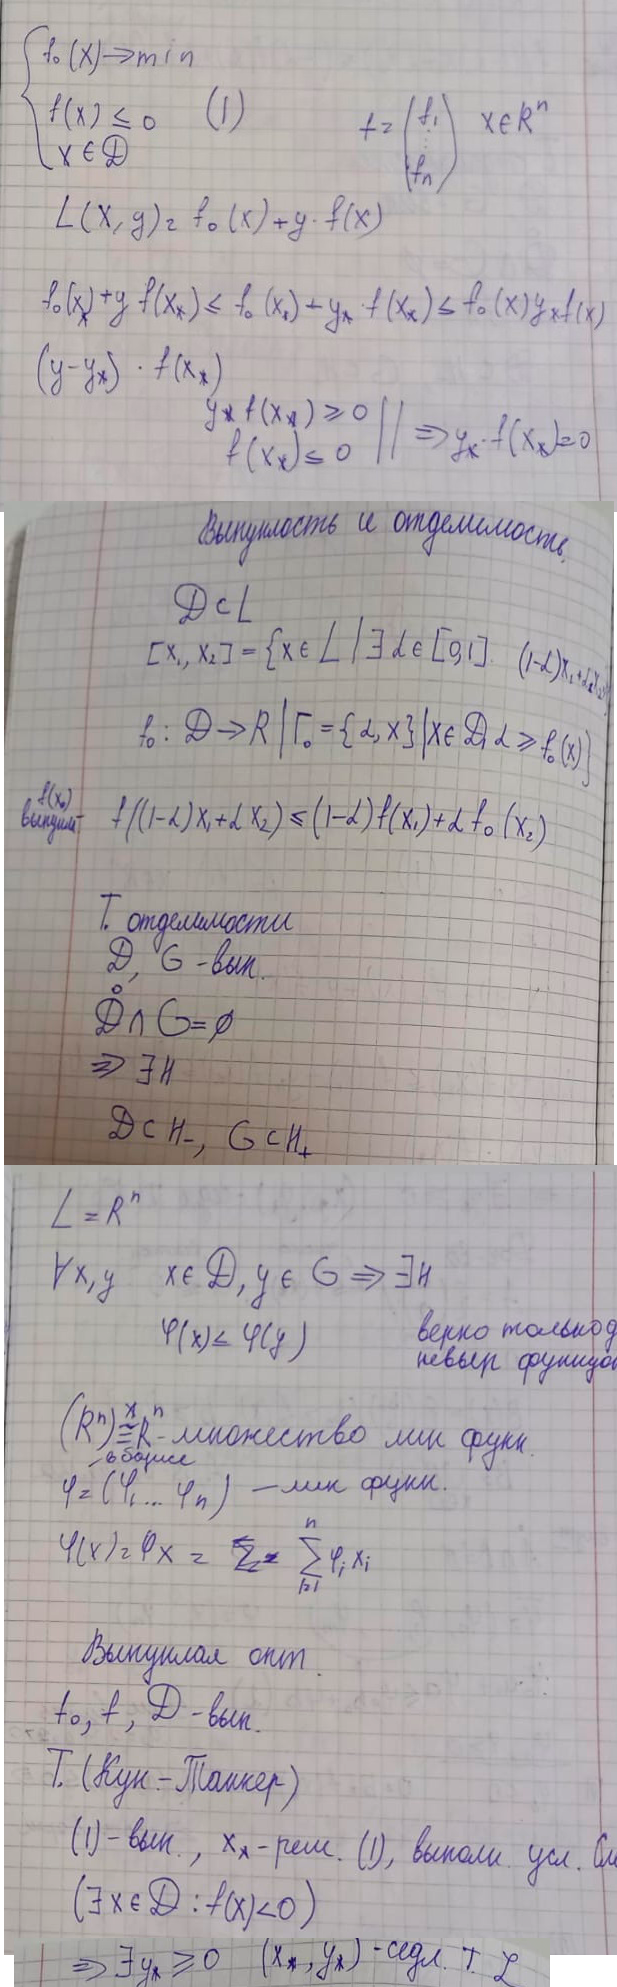 f₀(x) → min
f(x) ≤ 0 (1)
x ∈ D
f = (f₁ ⋮ fₙ) x ∈ Rⁿ
L(x, y) = f₀(x) + y · f(x)
f₀(x*) + y f(x*) ≤ f₀(x*) + y* · f(x*) ≤ f₀(x) y* f(x)
(y - y*) · f(x*)
y* f(x*) ≥ 0
f(x*) ≤ 0 || ⇒ y* · f(x*) = 0
Выпуклость и отделимость.
D ⊂ L
[x₁, x₂] = {x ∈ L | ∃ α ∈ [0,1]
f₀ : D → R | Γ₀ = {α, x} | x ∈ D, α ≥ f₀(x)}
f(x₀)
f((1-α)x₁ + αx₂) ≤ (1-α) f(x₁) + α f₀(x₂)
Т. отделимости
D, G - вып.
D̊ ∩ G = ∅
⇒ ∃H
D ⊂ H₋, G ⊂ H₊
L = Rⁿ
∀x, y x ∈ D, y ∈ G ⇒ ∃H
φ(x) ≤ φ(y)
верно только
(Rⁿ)* ≅ Rⁿ - множество лин функ.
в базисе
φ = (φ₁ ... φₙ) — лин функ.
φ(x) = φx = Σ φᵢ xᵢ
Выпуклая опт.
f₀, f, D - вып.
Т. (Кун - Таккер)
(1) - вып., x* - реш. (1), выполн. усл.
(∃ x ∈ D : f(x) < 0)
⇒ ∃ y* ≥ 0 (x*, y*) - седл. т. L